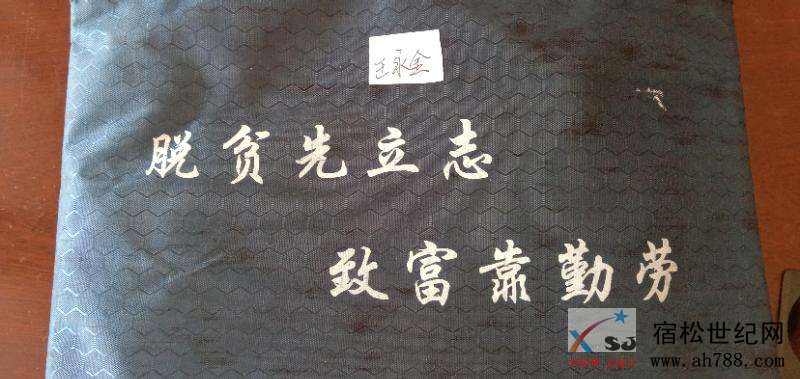 王永全
脱贫先立志
致富靠勤劳
XSJ
宿松世纪网
www.ah788.com